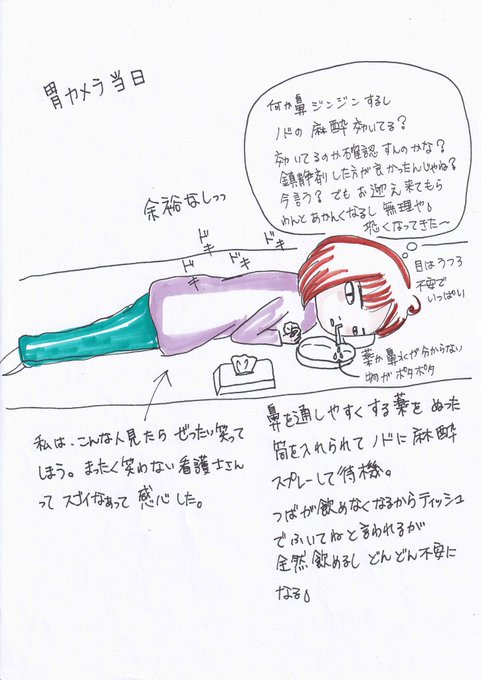 胃カメラ当日
何か鼻ジンジンするし
ノドの麻酔効いてる？
効いてるのか確認すんのかな？
鎮静剤した方が良かったんじゃね？
今言う？でもお迎え来てもら
わんとあかんくなるし無理や。
恐くなってきた〜
余裕なしっっ
ドキ
ドキ
ドキ
目はうつろ
不安で
いっぱい
薬か鼻水か分からない
物がポタポタ
私は、こんな人見たらぜったい笑って
しまう。まったく笑わない看護士さん
ってスゴイなあって感心した。
鼻を通しやすくする薬をぬった
筒を入れられてノドに麻酔
スプレーして待機。
つばが飲めなくなるからティッシュ
でふいてねと言われるが
全然飲めるしどんどん不安に
なる。